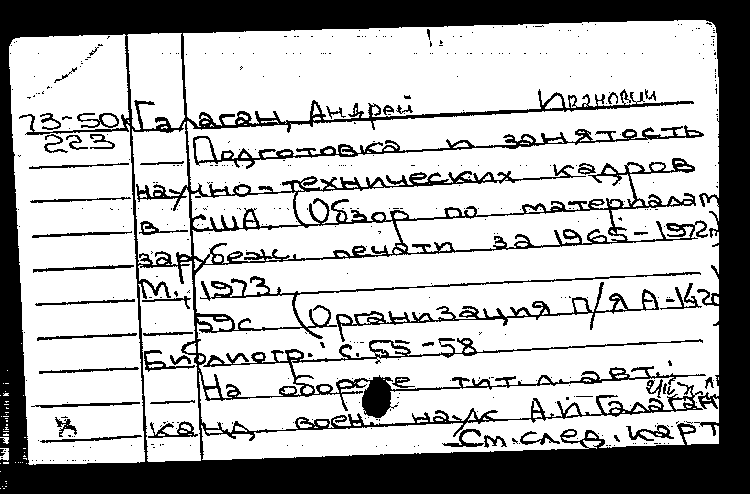 73-50к Галаган, Андрей Иванович
223
Подготовка и занятость
научно-технических кадров
в США. (Обзор по материалам
зарубеж. печати за 1965-1972гг)
М., 1973.
59с. (Организация п/я А-1420
Библиогр.: с. 55-58
На обороте тит. л. авт.:
канд. воен. наук А.И. Галаган
См. след. карт